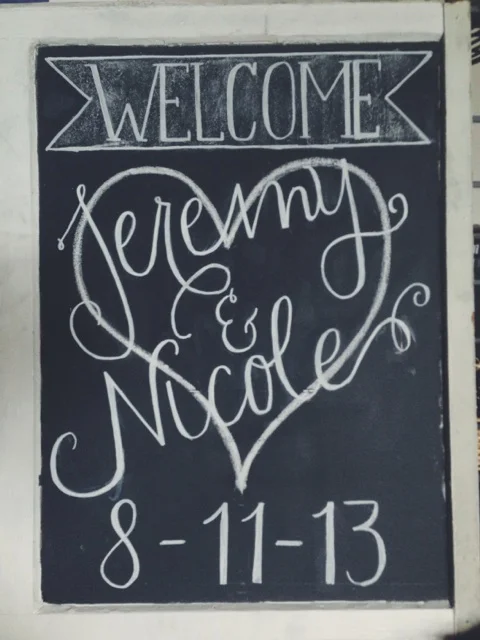 WELCOME
Jeremy
&
Nicole
8-11-13